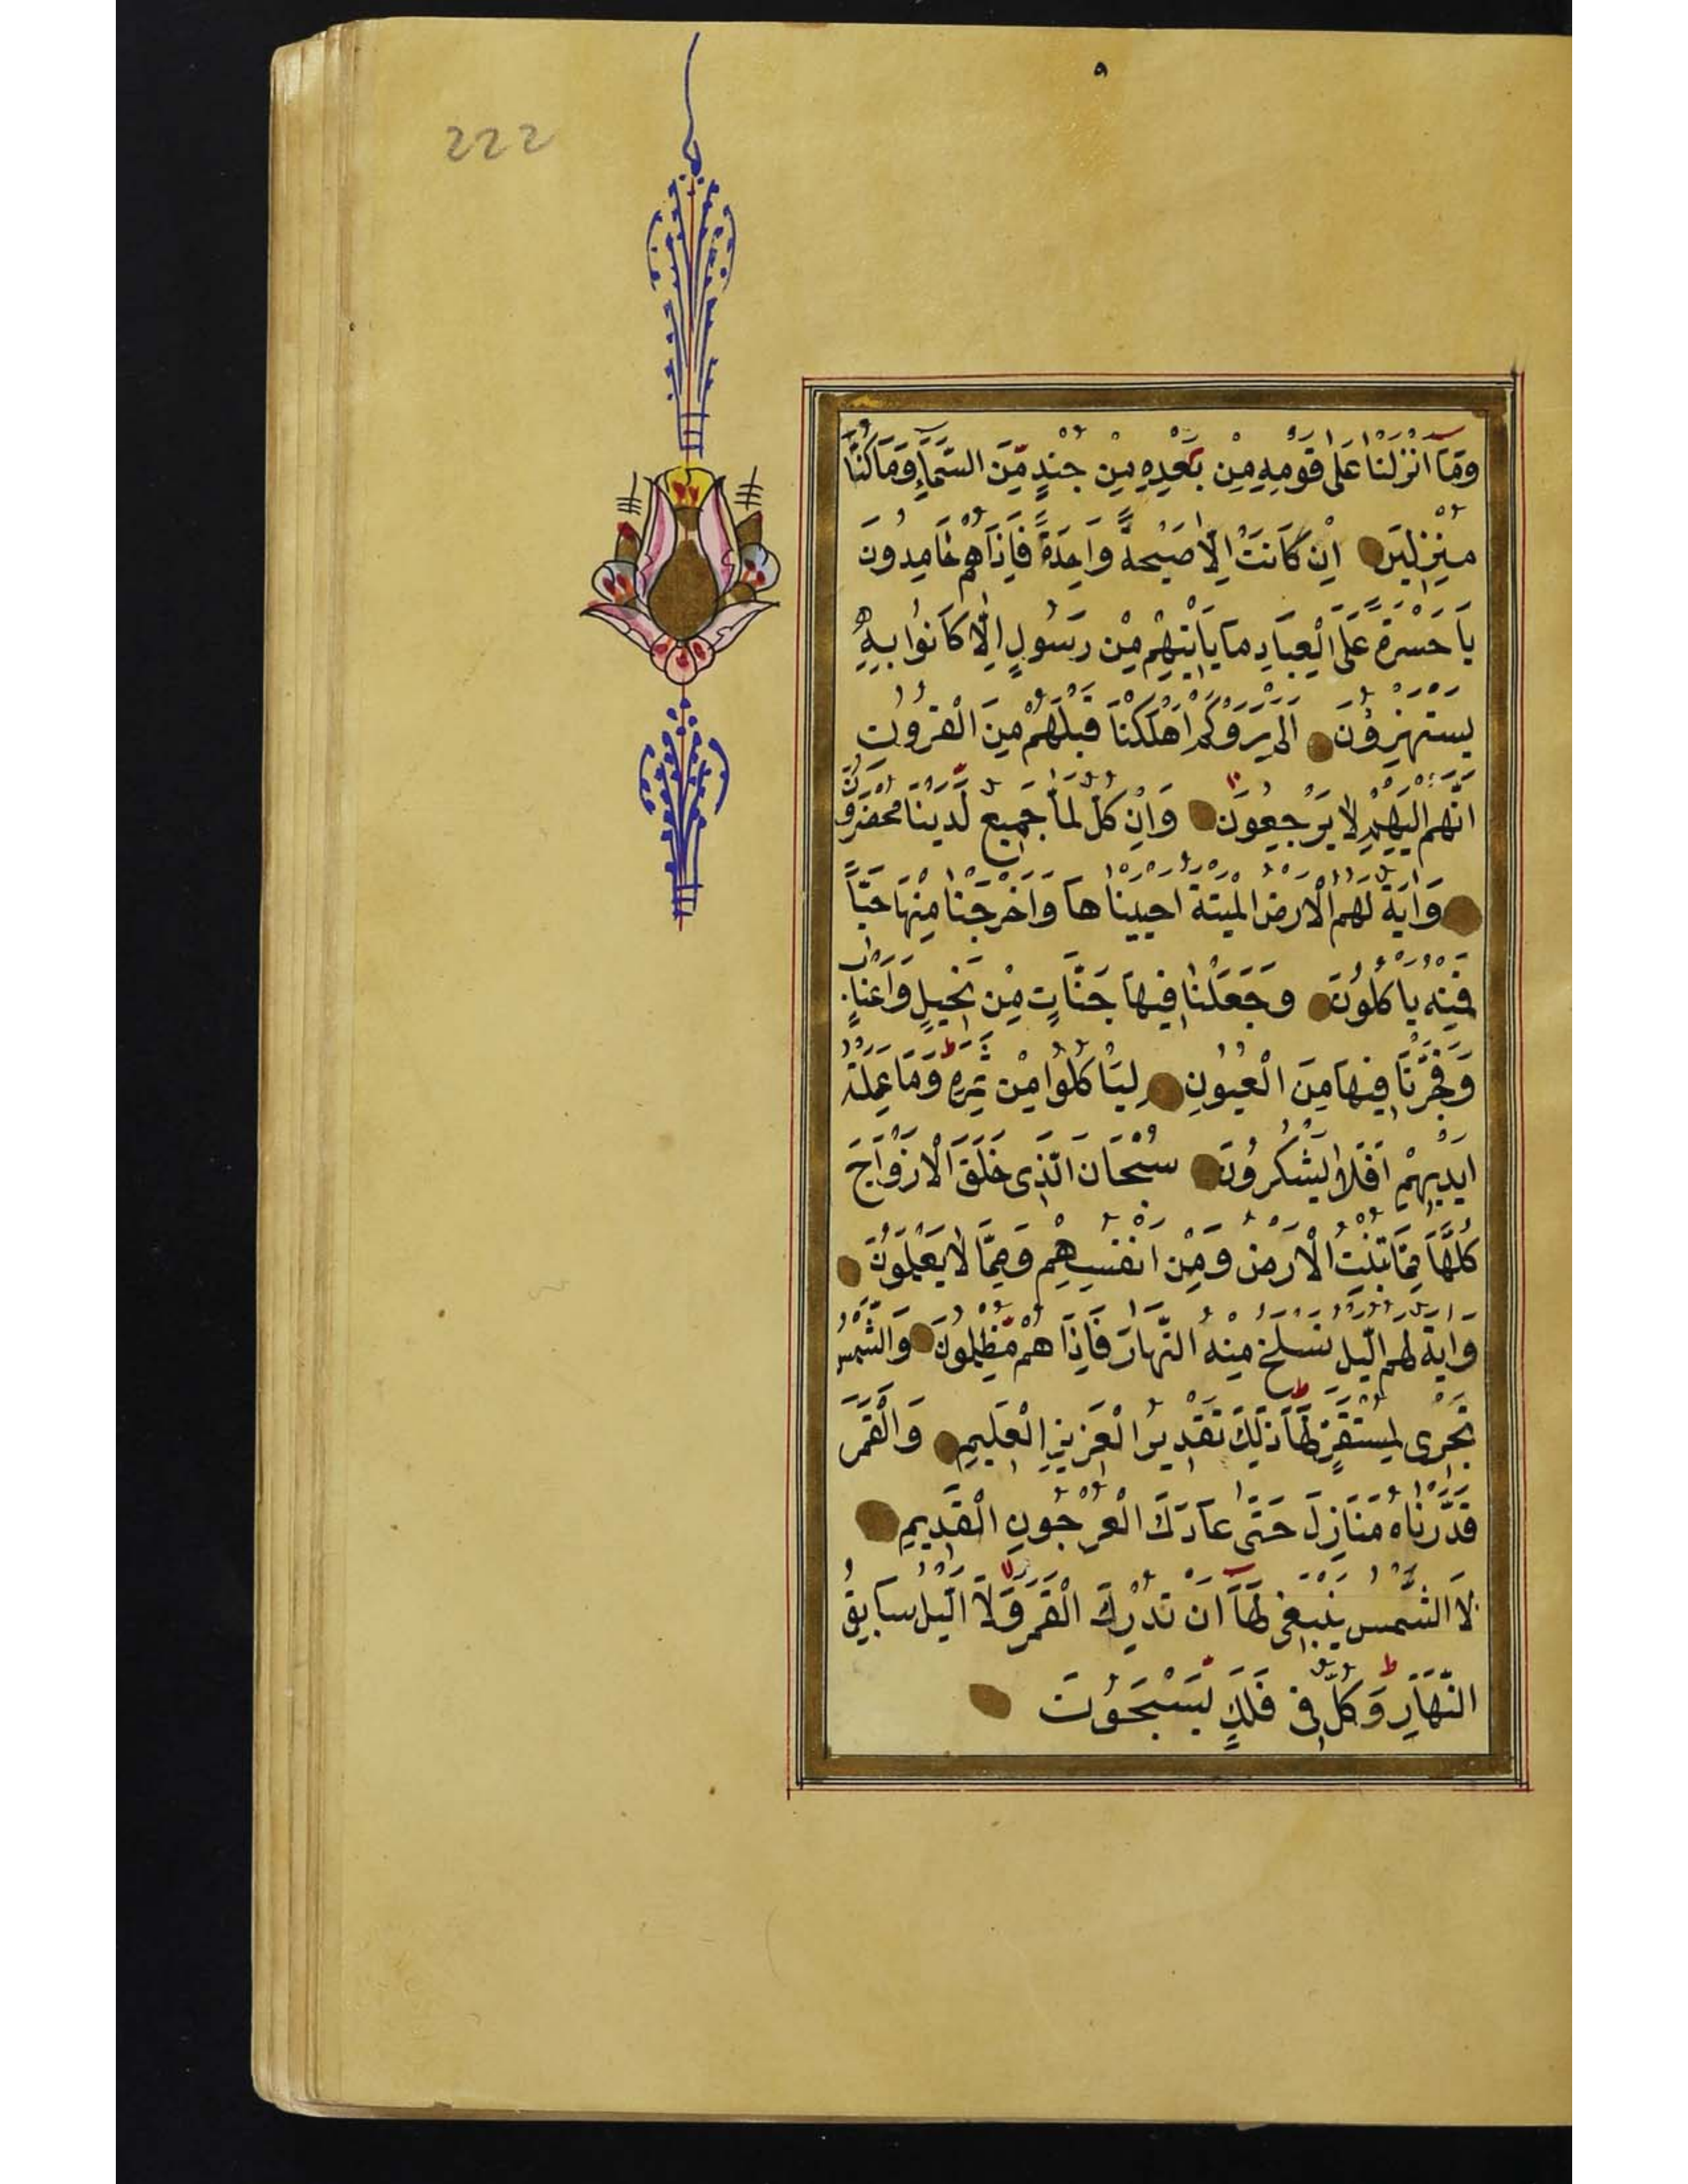 ۹
222
وَمَا اَنْزَلْنَا عَلٰى قَوْمِهِ مِنْ بَعْدِهِ مِنْ جُنْدٍ مِنَ السَّمَاءِ وَمَا كُنَّا
مُنْزِلِينَ اِنْ كَانَتْ اِلَّا صَيْحَةً وَاحِدَةً فَاِذَا هُمْ خَامِدُونَ
يَا حَسْرَةً عَلَى الْعِبَادِ مَا يَاْتِيهِمْ مِنْ رَسُولٍ اِلَّا كَانُوا بِهِ
يَسْتَهْزِؤُنَ اَلَمْ يَرَوْا كَمْ اَهْلَكْنَا قَبْلَهُمْ مِنَ الْقُرُونِ
اَنَّهُمْ اِلَيْهِمْ لَا يَرْجِعُونَ وَاِنْ كُلٌّ لَمَّا جَمِيعٌ لَدَيْنَا مُحْضَرُونَ
وَاٰيَةٌ لَهُمُ الْاَرْضُ الْمَيْتَةُ اَحْيَيْنَاهَا وَاَخْرَجْنَا مِنْهَا حَبًّا
فَمِنْهُ يَاْكُلُونَ وَجَعَلْنَا فِيهَا جَنَّاتٍ مِنْ نَخِيلٍ وَاَعْنَابٍ
وَفَجَّرْنَا فِيهَا مِنَ الْعُيُونِ لِيَاْكُلُوا مِنْ ثَمَرِهِ وَمَا عَمِلَتْهُ
اَيْدِيهِمْ اَفَلَا يَشْكُرُونَ سُبْحَانَ الَّذِى خَلَقَ الْاَزْوَاجَ
كُلَّهَا مِمَّا تُنْبِتُ الْاَرْضُ وَمِنْ اَنْفُسِهِمْ وَمِمَّا لَا يَعْلَمُونَ
وَاٰيَةٌ لَهُمُ الَّيْلُ نَسْلَخُ مِنْهُ النَّهَارَ فَاِذَا هُمْ مُظْلِمُونَ وَالشَّمْسُ
تَجْرِى لِمُسْتَقَرٍّ لَهَا ذٰلِكَ تَقْدِيرُ الْعَزِيزِ الْعَلِيمِ وَالْقَمَرَ
قَدَّرْنَاهُ مَنَازِلَ حَتّٰى عَادَ كَالْعُرْجُونِ الْقَدِيمِ
لَا الشَّمْسُ يَنْبَغِى لَهَا اَنْ تُدْرِكَ الْقَمَرَ وَلَا الَّيْلُ سَابِقُ
النَّهَارِ وَكُلٌّ فِى فَلَكٍ يَسْبَحُونَ